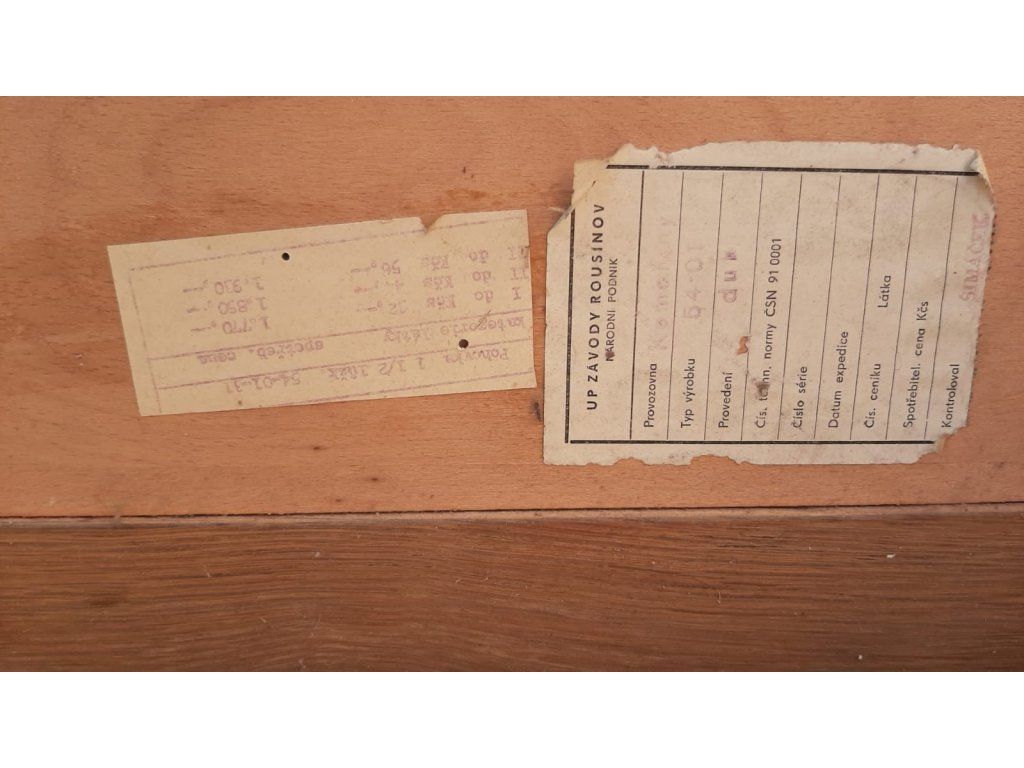 Pohovka 1 1/2 lůžk. 54-01-31
kategorie látky spotřeb. cena
I do Kčs 32,-- 1.770,--
II do Kčs 1.850,--
III do Kčs 56,-- 1.930,--
UP ZÁVODY ROUSÍNOV
NÁRODNÍ PODNIK
Provozovna
Typ výrobku 54-01
Provedení dub
Čís. techn. normy ČSN 91 0001
Číslo série
Datum expedice
Čís. ceníku Látka
Spotřebitel. cena Kčs
Kontroloval